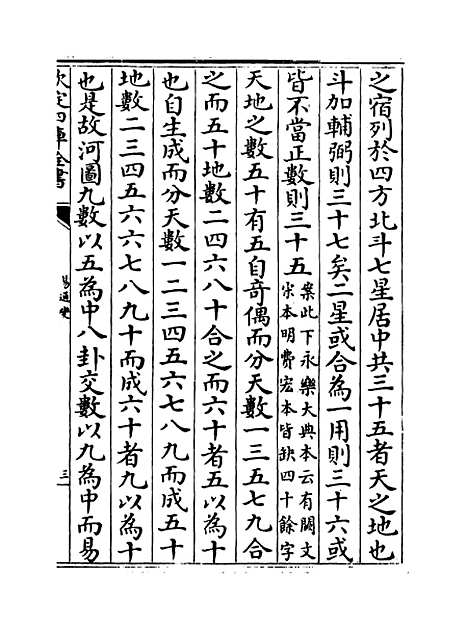 之宿列於四方北斗七星居中共三十五者天之地也
斗加輔弼則三十七矣二星或合為一用則三十六或
皆不當正數則三十五案此下永樂大典本云有闕文
宋本明費宏本皆缺四十餘字
天地之數五十有五自奇偶而分天數一三五七九合
之而五十地數二四六八十合之而六十者五以為十
也自生成而分天數一二三四五六七八九而成五十
地數二三四五六六七八九十而成六十者九以為十
也是故河圖九數以五為中八卦交數以九為中而易
欽定四庫全書
易通變
三